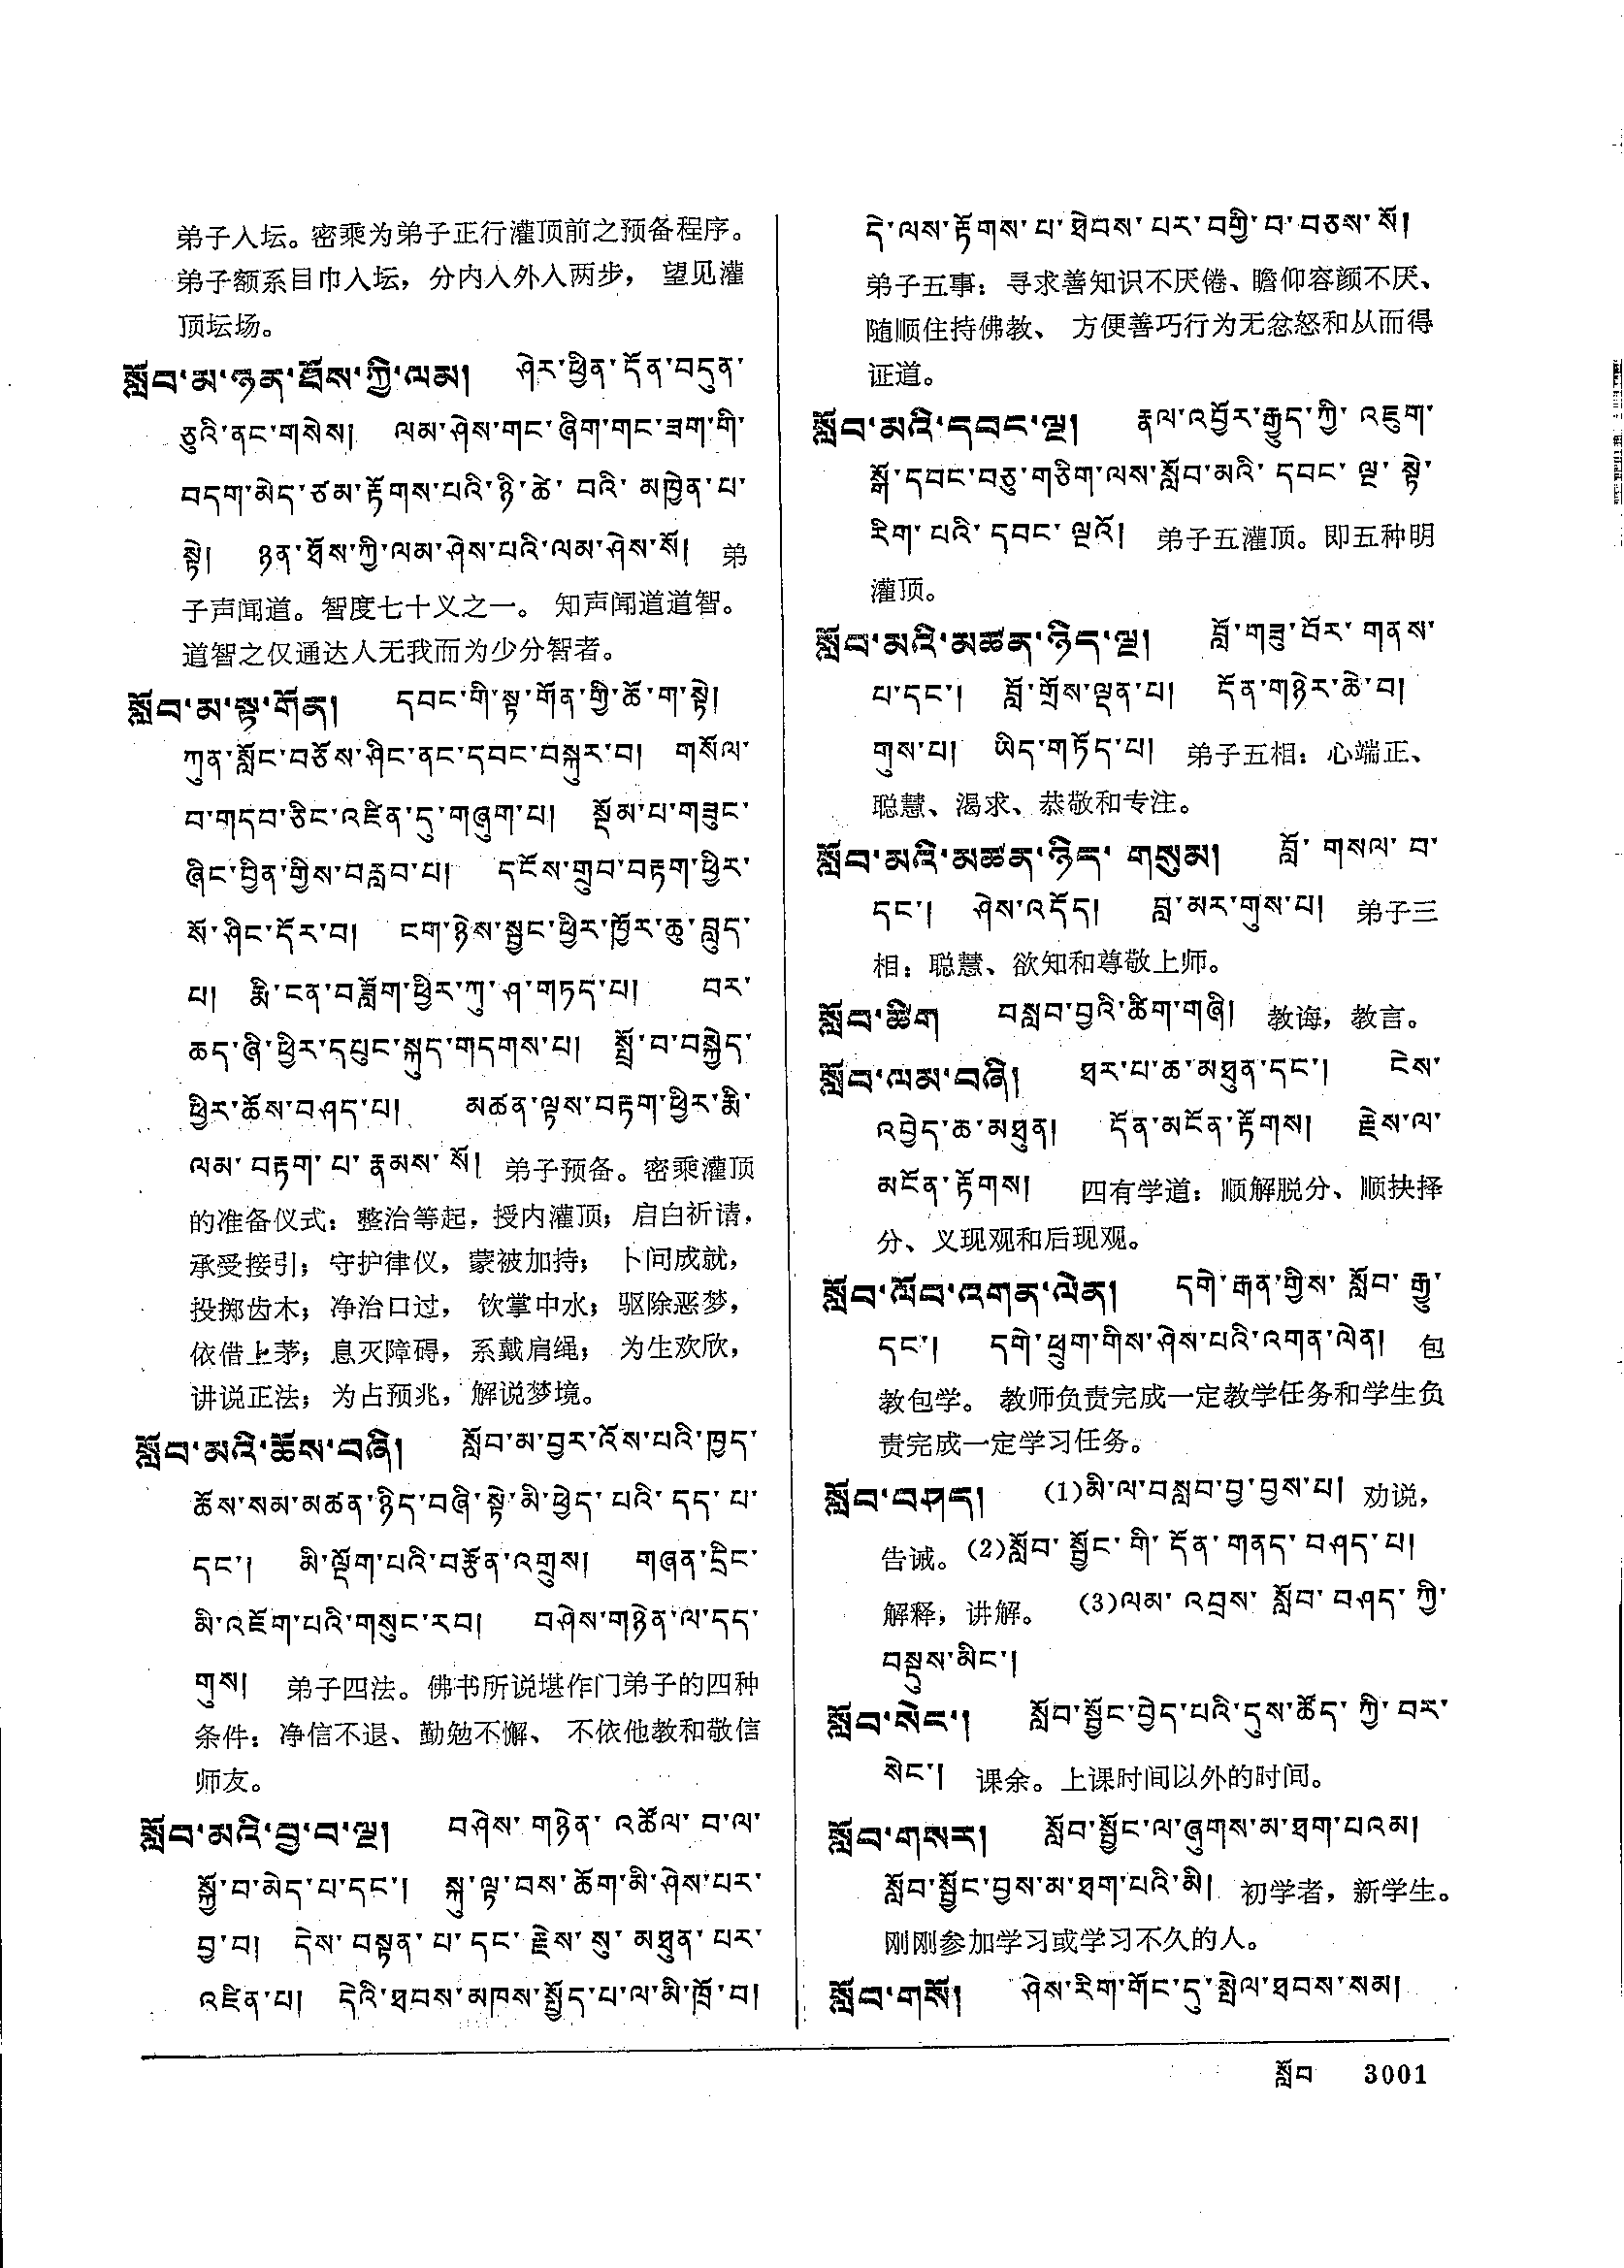 弟子入坛。密乘为弟子正行灌顶前之预备程序。
弟子额系目巾入坛，分内入外入两步， 望见灌
顶坛场。
སློབ་མ་ཉན་ཐོས་ཀྱི་ལམ། ཤེར་ཕྱིན་དོན་བདུན་
ཅུའི་ནང་གསེས། ལམ་ཤེས་གང་ཞིག་གང་ཟག་གི་
བདག་མེད་ཙམ་རྟོགས་པའི་ཉི་ཚེ་བའི་མཁྱེན་པ་
སྟེ། ཉན་ཐོས་ཀྱི་ལམ་ཤེས་པའི་ལམ་ཤེས་སོ། 弟
子声闻道。智度七十义之一。 知声闻道道智。
道智之仅通达人无我而为少分智者。
སློབ་མ་སྟ་གོན། དབང་གི་སྟ་གོན་གྱི་ཆོ་ག་སྟེ།
ཀུན་སློང་བཅོས་ཤིང་ནང་དབང་བསྐུར་བ། གསོལ་
བ་གདབ་ཅིང་འཛིན་དུ་གཞུག་པ། སྡོམ་པ་གཟུང་
ཞིང་བྱིན་གྱིས་བརླབ་པ། དངོས་གྲུབ་བརྟག་ཕྱིར་
སོ་ཤིང་དོར་བ། ངག་ཉེས་སྦྱང་ཕྱིར་ཁྱོར་ཆུ་བླུད་
པ། རྨི་ངན་བཟློག་ཕྱིར་ཀུ་ཤ་གཏད་པ། བར་
ཆད་ཞི་ཕྱིར་དཔུང་སྐུད་གདགས་པ། སྤྲོ་བ་བསྐྱེད་
ཕྱིར་ཆོས་བཤད་པ། མཚན་ལྟས་བརྟག་ཕྱིར་རྨི་
ལམ་བརྟག་པ་རྣམས་སོ། 弟子预备。密乘灌顶
的准备仪式：整治等起，授内灌顶；启白祈请，
承受接引；守护律仪，蒙被加持； 卜问成就，
投掷齿木；净治口过， 饮掌中水；驱除恶梦，
依借上茅；息灭障碍，系戴肩绳； 为生欢欣，
讲说正法；为占预兆，解说梦境。
སློབ་མའི་ཆོས་བཞི། སློབ་མ་བྱར་འོས་པའི་ཁྱད་
ཆོས་སམ་མཚན་ཉིད་བཞི་སྟེ་མི་ཕྱེད་པའི་དད་པ་
དང་། མི་ལྡོག་པའི་བརྩོན་འགྲུས། གཞན་དྲིང་
མི་འཇོག་པའི་གསུང་རབ། བཤེས་གཉེན་ལ་དད་
གུས། 弟子四法。佛书所说堪作门弟子的四种
条件：净信不退、勤勉不懈、 不依他教和敬信
师友。
སློབ་མའི་བྱ་བ་ལྔ། བཤེས་གཉེན་འཚོལ་བ་ལ་
སྐྱོ་བ་མེད་པ་དང་། སྐུ་ལྟ་བས་ཆོག་མི་ཤེས་པར་
བྱ་བ། དེས་བསྟན་པ་དང་རྗེས་སུ་མཐུན་པར་
འཛིན་པ། དེའི་ཐབས་མཁས་སྤྱོད་པ་ལ་མི་ཁྲོ་བ།
དེ་ལས་རྟོགས་པ་ཐེབས་པར་བགྱི་བ་བཅས་སོ།
弟子五事：寻求善知识不厌倦、瞻仰容颜不厌、
随顺住持佛教、 方便善巧行为无忿怒和从而得
证道。
སློབ་མའི་དབང་ལྔ། རྣལ་འབྱོར་རྒྱུད་ཀྱི་འཇུག་
སྒོ་དབང་བཅུ་གཅིག་ལས་སློབ་མའི་དབང་ལྔ་སྟེ་
རིག་པའི་དབང་ལྔའོ། 弟子五灌顶。即五种明
灌顶。
སློབ་མའི་མཚན་ཉིད་ལྔ། བློ་གཟུ་བོར་གནས་
པ་དང་། བློ་གྲོས་ལྡན་པ། དོན་གཉེར་ཆེ་བ།
གུས་པ། ཡིད་གཏོད་པ། 弟子五相：心端正、
聪慧、渴求、恭敬和专注。
སློབ་མའི་མཚན་ཉིད་གསུམ། བློ་གསལ་བ་
དང་། ཤེས་འདོད། བླ་མར་གུས་པ། 弟子三
相：聪慧、欲知和尊敬上师。
སློབ་ཚིག བསླབ་བྱའི་ཚིག་གཞི། 教诲，教言。
སློབ་ལམ་བཞི། ཐར་པ་ཆ་མཐུན་དང་། ངེས་
འབྱེད་ཆ་མཐུན། དོན་མངོན་རྟོགས། རྗེས་ལ་
མངོན་རྟོགས། 四有学道：顺解脱分、顺抉择
分、义现观和后现观。
སློབ་ལོབ་འགན་ལེན། དགེ་རྒན་གྱིས་སློབ་རྒྱུ་
དང་། དགེ་ཕྲུག་གིས་ཤེས་པའི་འགན་ལེན། 包
教包学。 教师负责完成一定教学任务和学生负
责完成一定学习任务。
སློབ་བཤད། (1)མི་ལ་བསླབ་བྱ་བྱས་པ། 劝说，
告诫。(2)སློབ་སྦྱོང་གི་དོན་གནད་བཤད་པ།
解释，讲解。 (3)ལམ་འབྲས་སློབ་བཤད་ཀྱི་
བསྡུས་མིང་།
སློབ་སེང་། སློབ་སྦྱོང་བྱེད་པའི་དུས་ཚོད་ཀྱི་བར་
སེང་། 课余。上课时间以外的时间。
སློབ་གསར། སློབ་སྦྱོང་ལ་ཞུགས་མ་ཐག་པའམ།
སློབ་སྦྱོང་བྱས་མ་ཐག་པའི་མི། 初学者，新学生。
刚刚参加学习或学习不久的人。
སློབ་གསོ། ཤེས་རིག་གོང་དུ་སྤེལ་ཐབས་སམ།
སློབ 3001